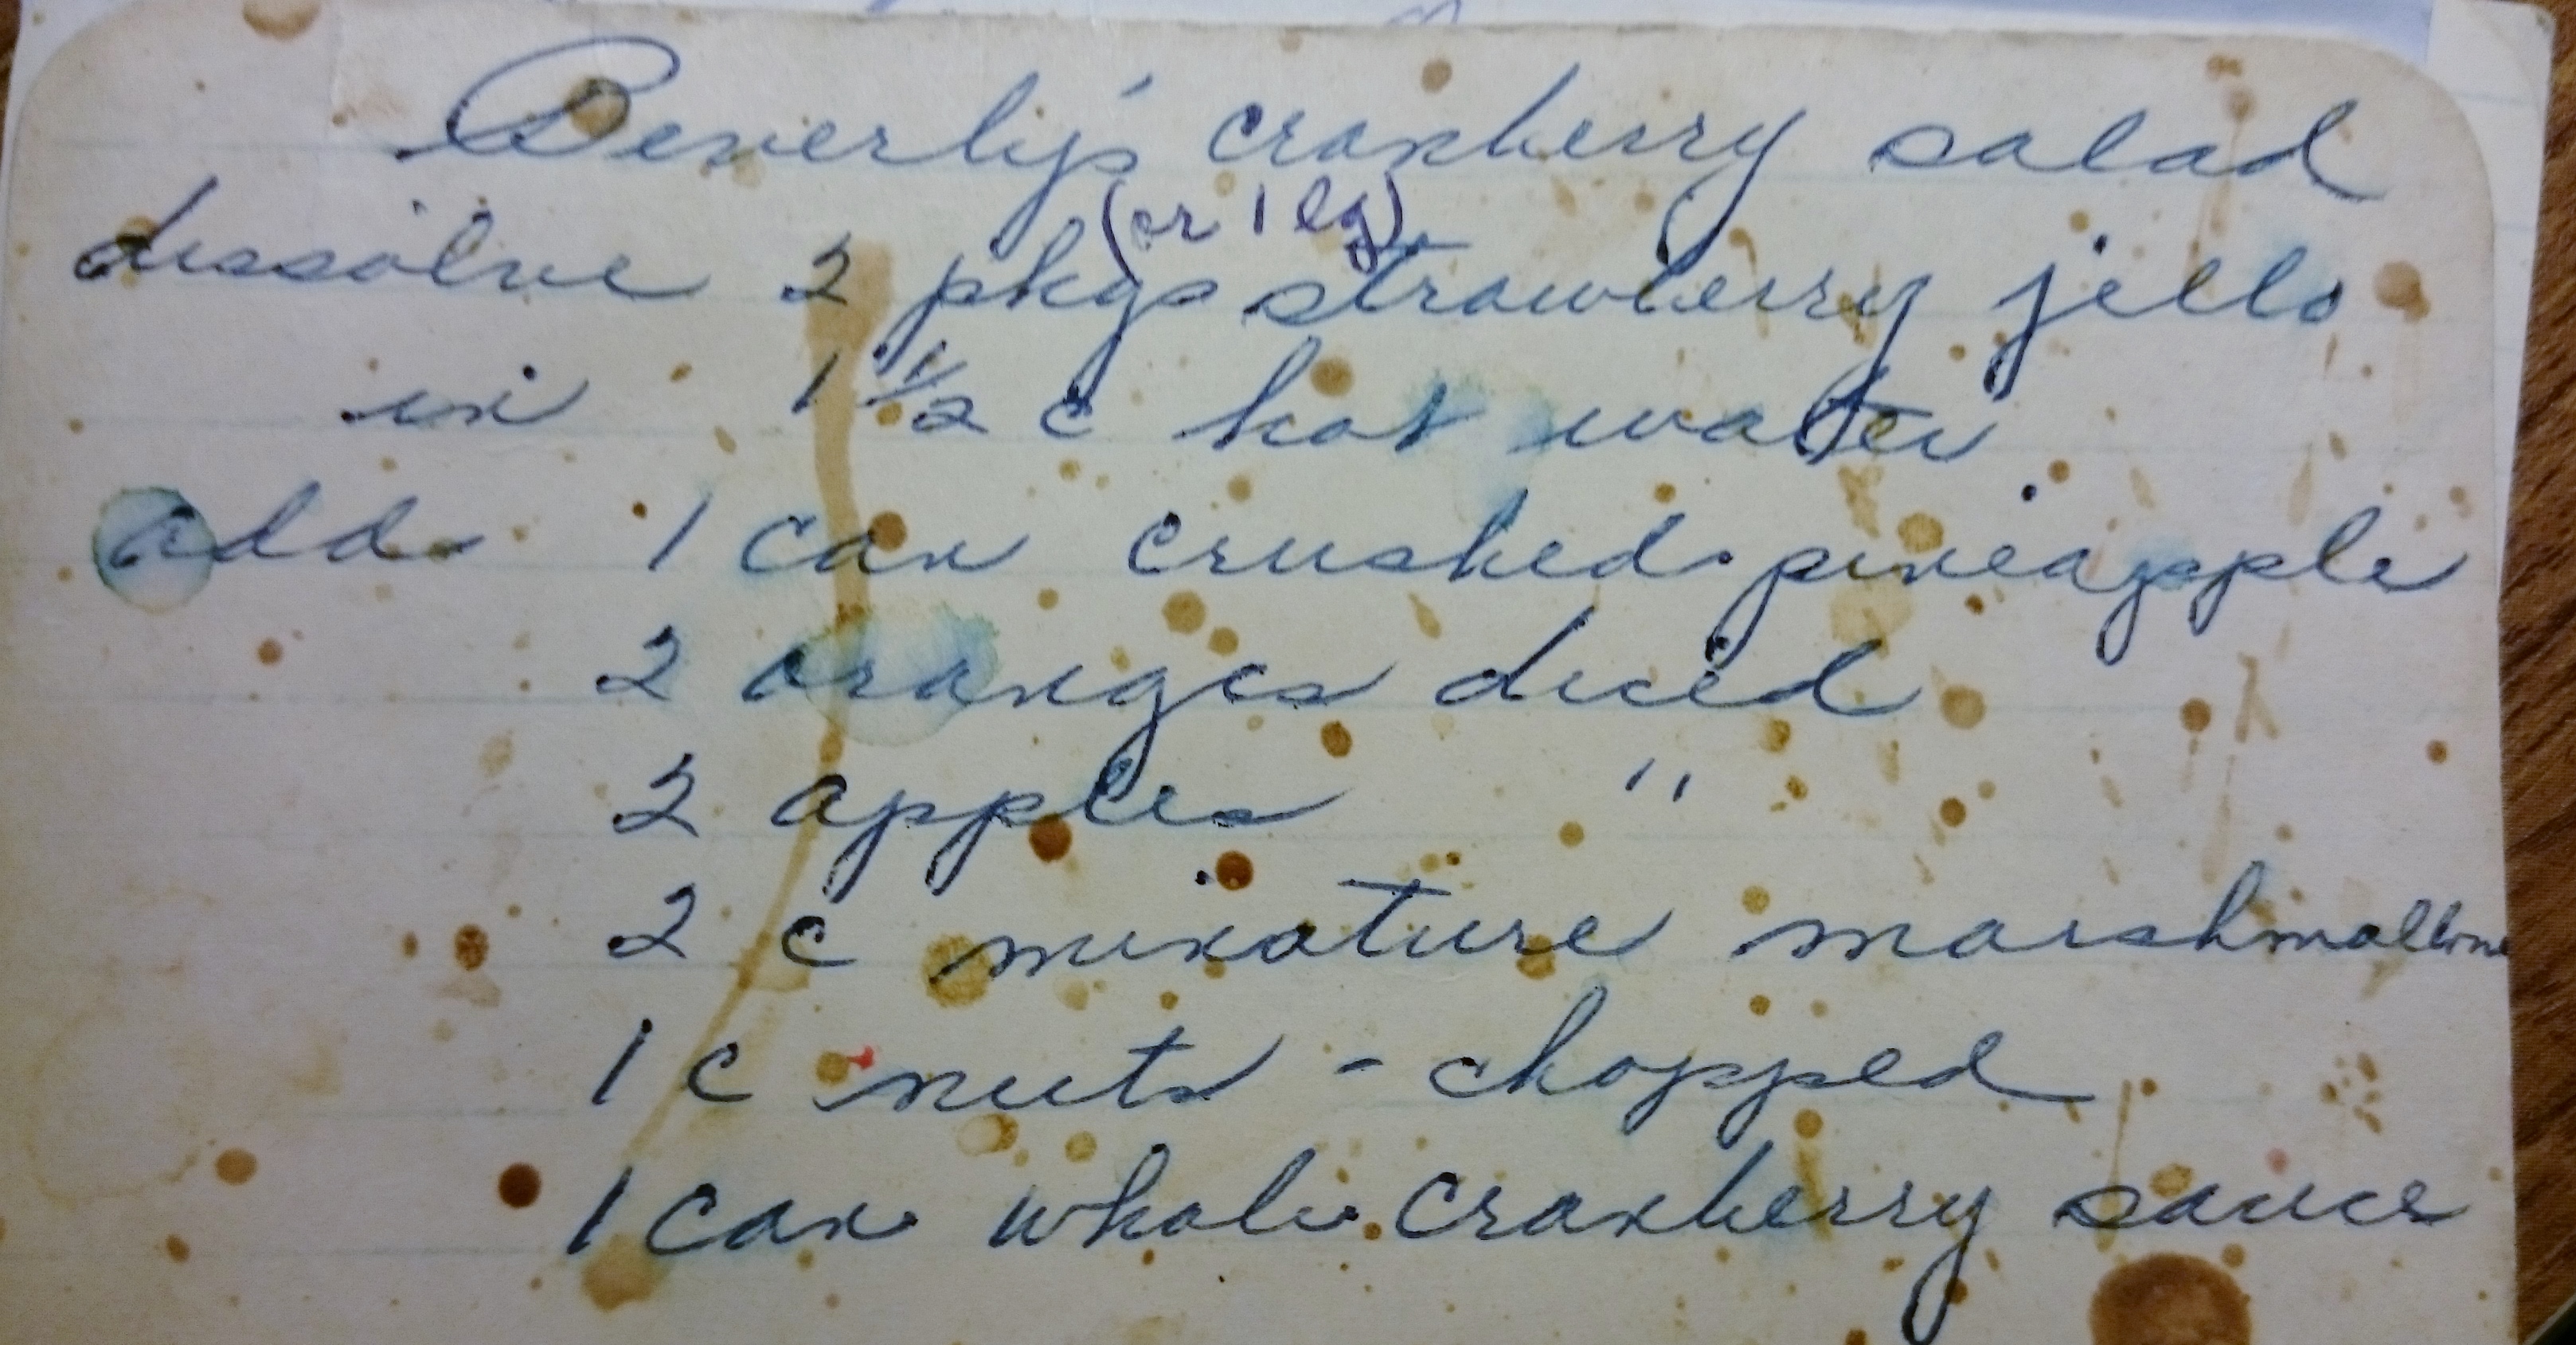 Beverly's cranberry salad
(or 1 lg)
dissolve 2 pkgs strawberry jello
in 1 1/2 c hot water
add 1 can crushed pineapple
2 oranges diced
2 apples "
2 c minature marshmallows
1 c nuts - chopped
1 can whole cranberry sauce